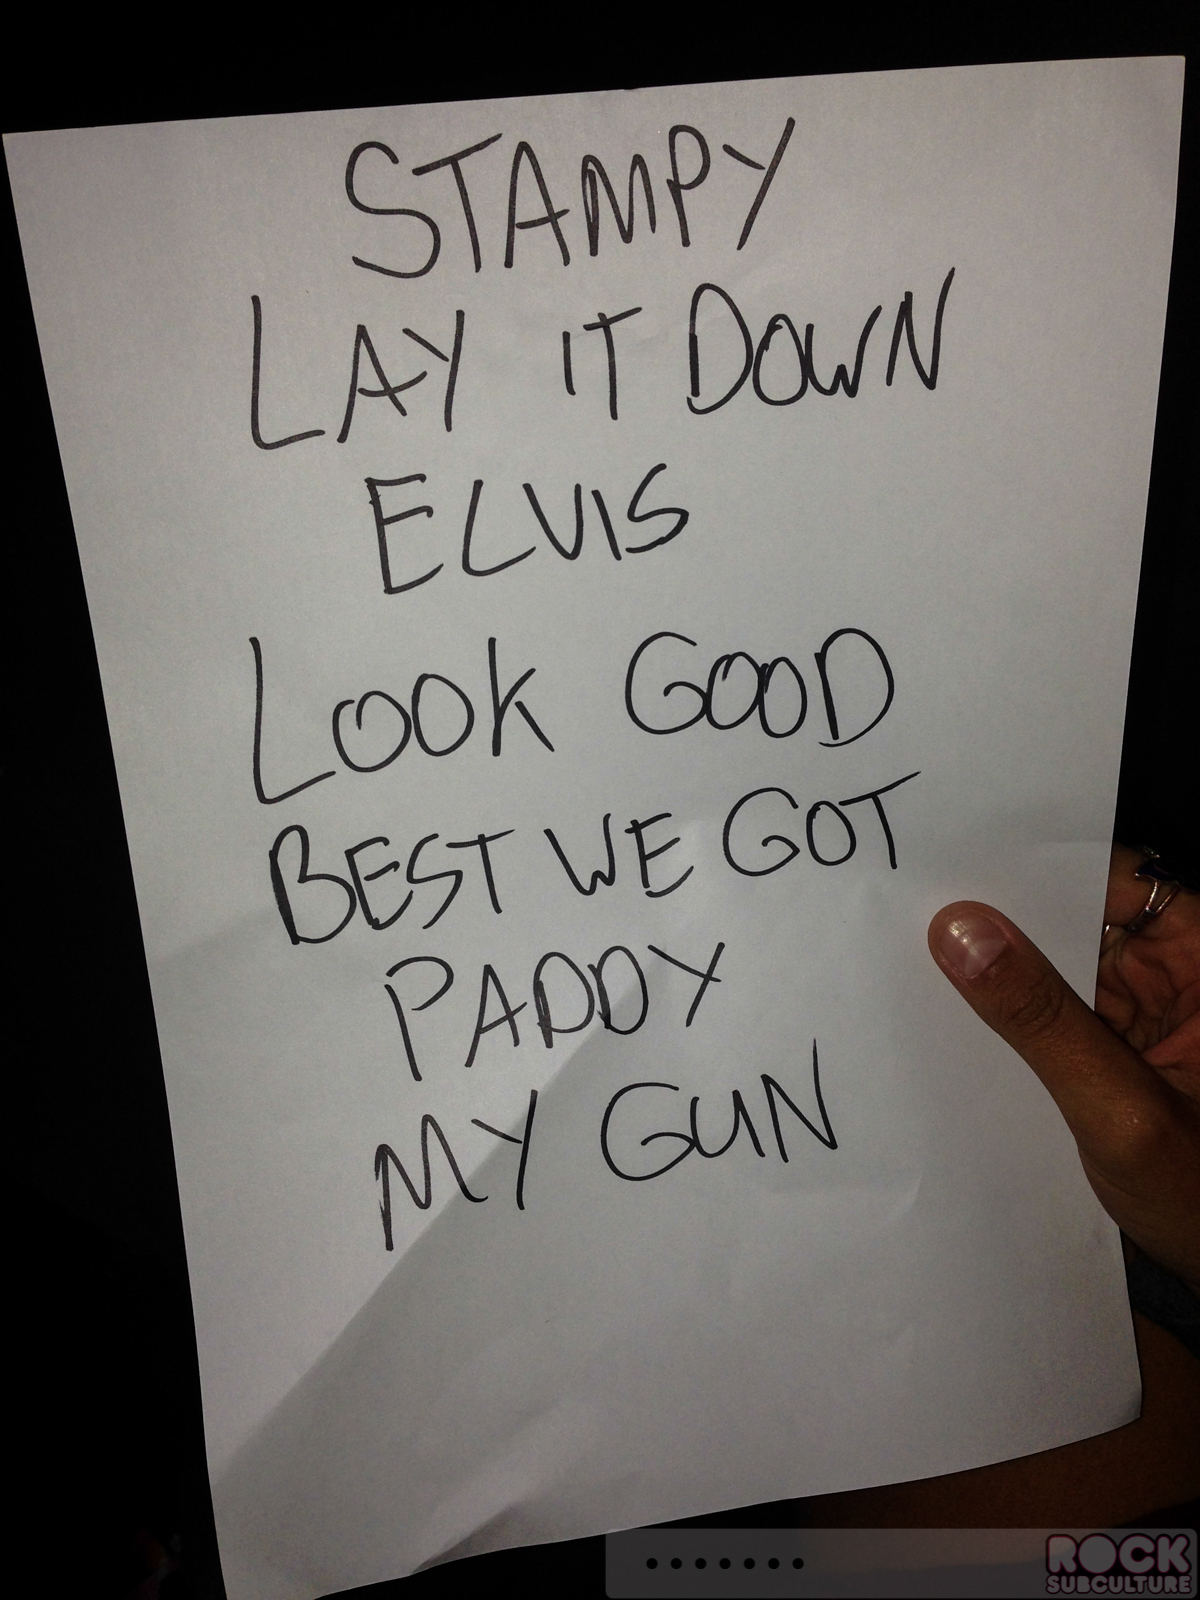 STAMPY
LAY IT DOWN
ELVIS
LOOK GOOD
BEST WE GOT
PADDY
MY GUN
ROCK
SUBCULTURE